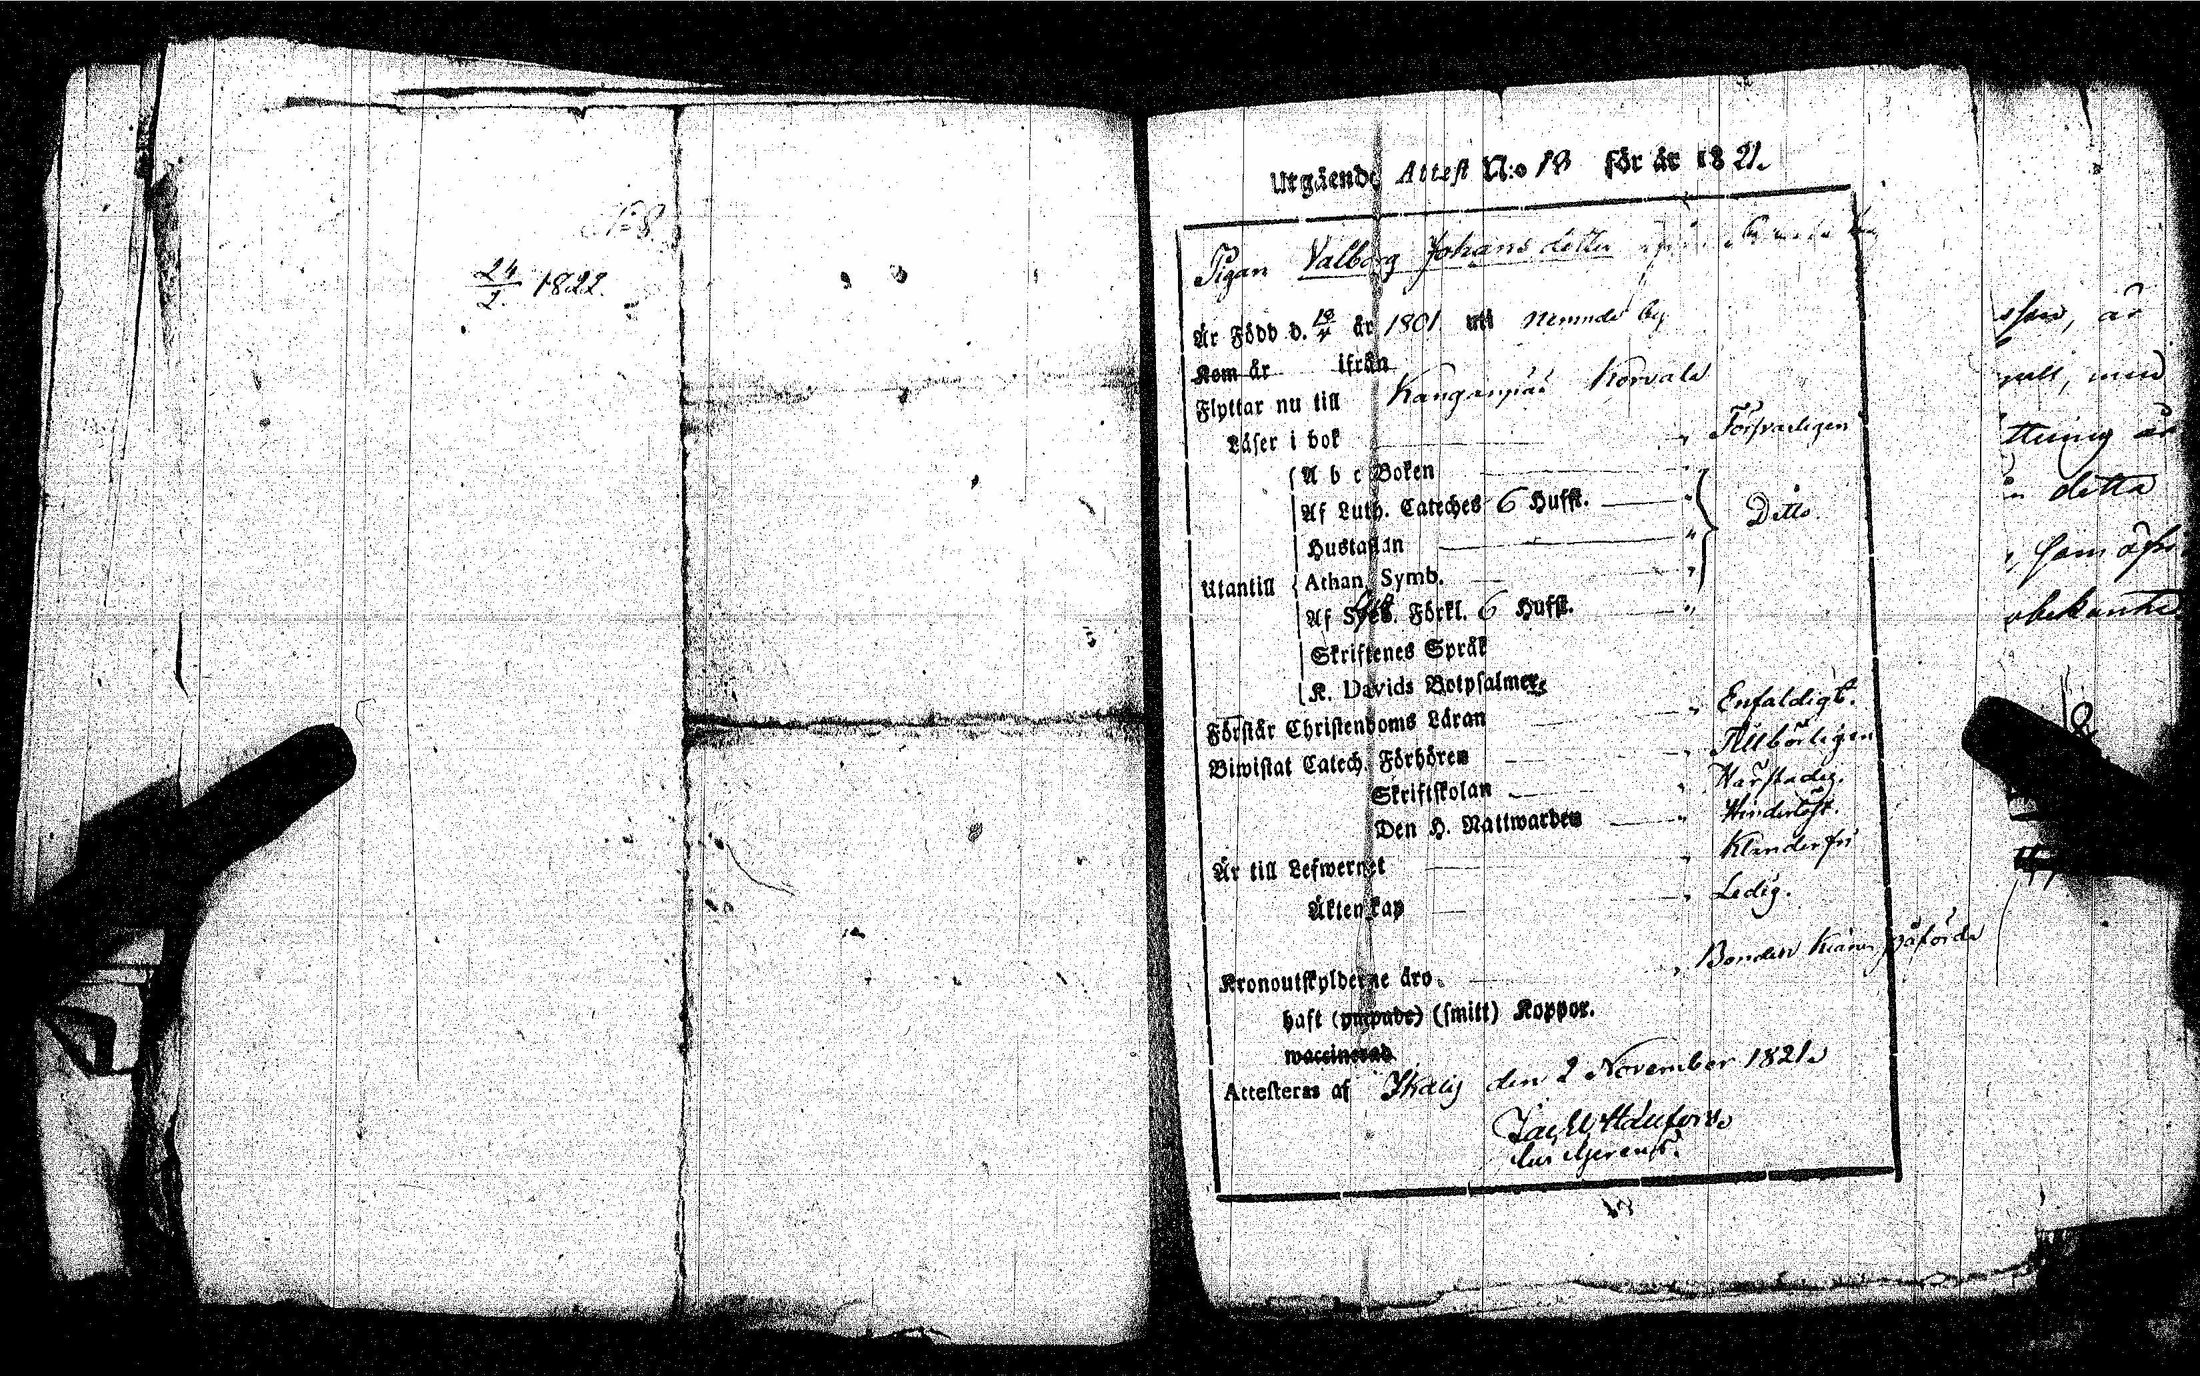 N:o 8.
24/2 1822.
Utgående Attest N:o 18 för år 1821.
Pigan Valborg Johansdotter
Är Född d. år 1801 uti nemnde by
Kom år ifrån
Flyttar nu till Kangaspää Korvala
Läser i bok " Försvarligen
A b c Boken "
Af Luth. Cateches 6 Hufst. " Ditto.
Hustaflan "
Utantill Athan. Symb. "
Af Förkl. 6 Hufst. "
Skriftenes Språk
K. Davids Botpsalmer.
Förstår Christendoms Läran " Enfaldigt.
Biwistat Catech. Förhören " Tillbörligen
Skriftskolan "
Den H. Nattwarden " Hinderlöst.
Är till Lefwernet " Klanderfri
Äktenskap " Ledig.
Kronoutskylderne äro " Bonden påförde
haft (ympade) (smitt) Koppor.
waccinerad
Attesteras af Ikalis den 2 November 1821.
ssen, är
ttning är
detta
som
obekante